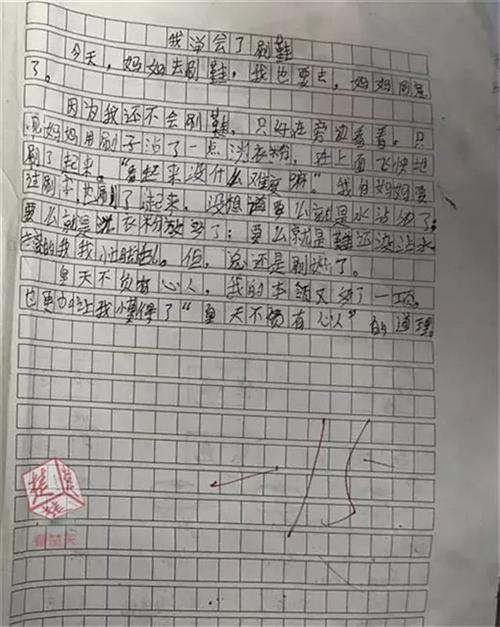 我学会了刷鞋
今天,妈妈去刷鞋,我也要去,妈妈同意
了。
因为我还不会刷鞋,只好在旁边看着。只
见妈妈用刷子沾了一点洗衣粉,在上面飞快地
刷了起来。“看起来没什么难度嘛。”我向妈妈要
过刷子,也刷了起来,没想道要么就是水沾多了;
要么就是洗衣粉放多了;要么就是鞋还没沾水
我。但,总还是刷
皇天不负有心人,我的本领又多了一项。
也更加让我懂得了“皇天不负有心人”的道理。
看楚天